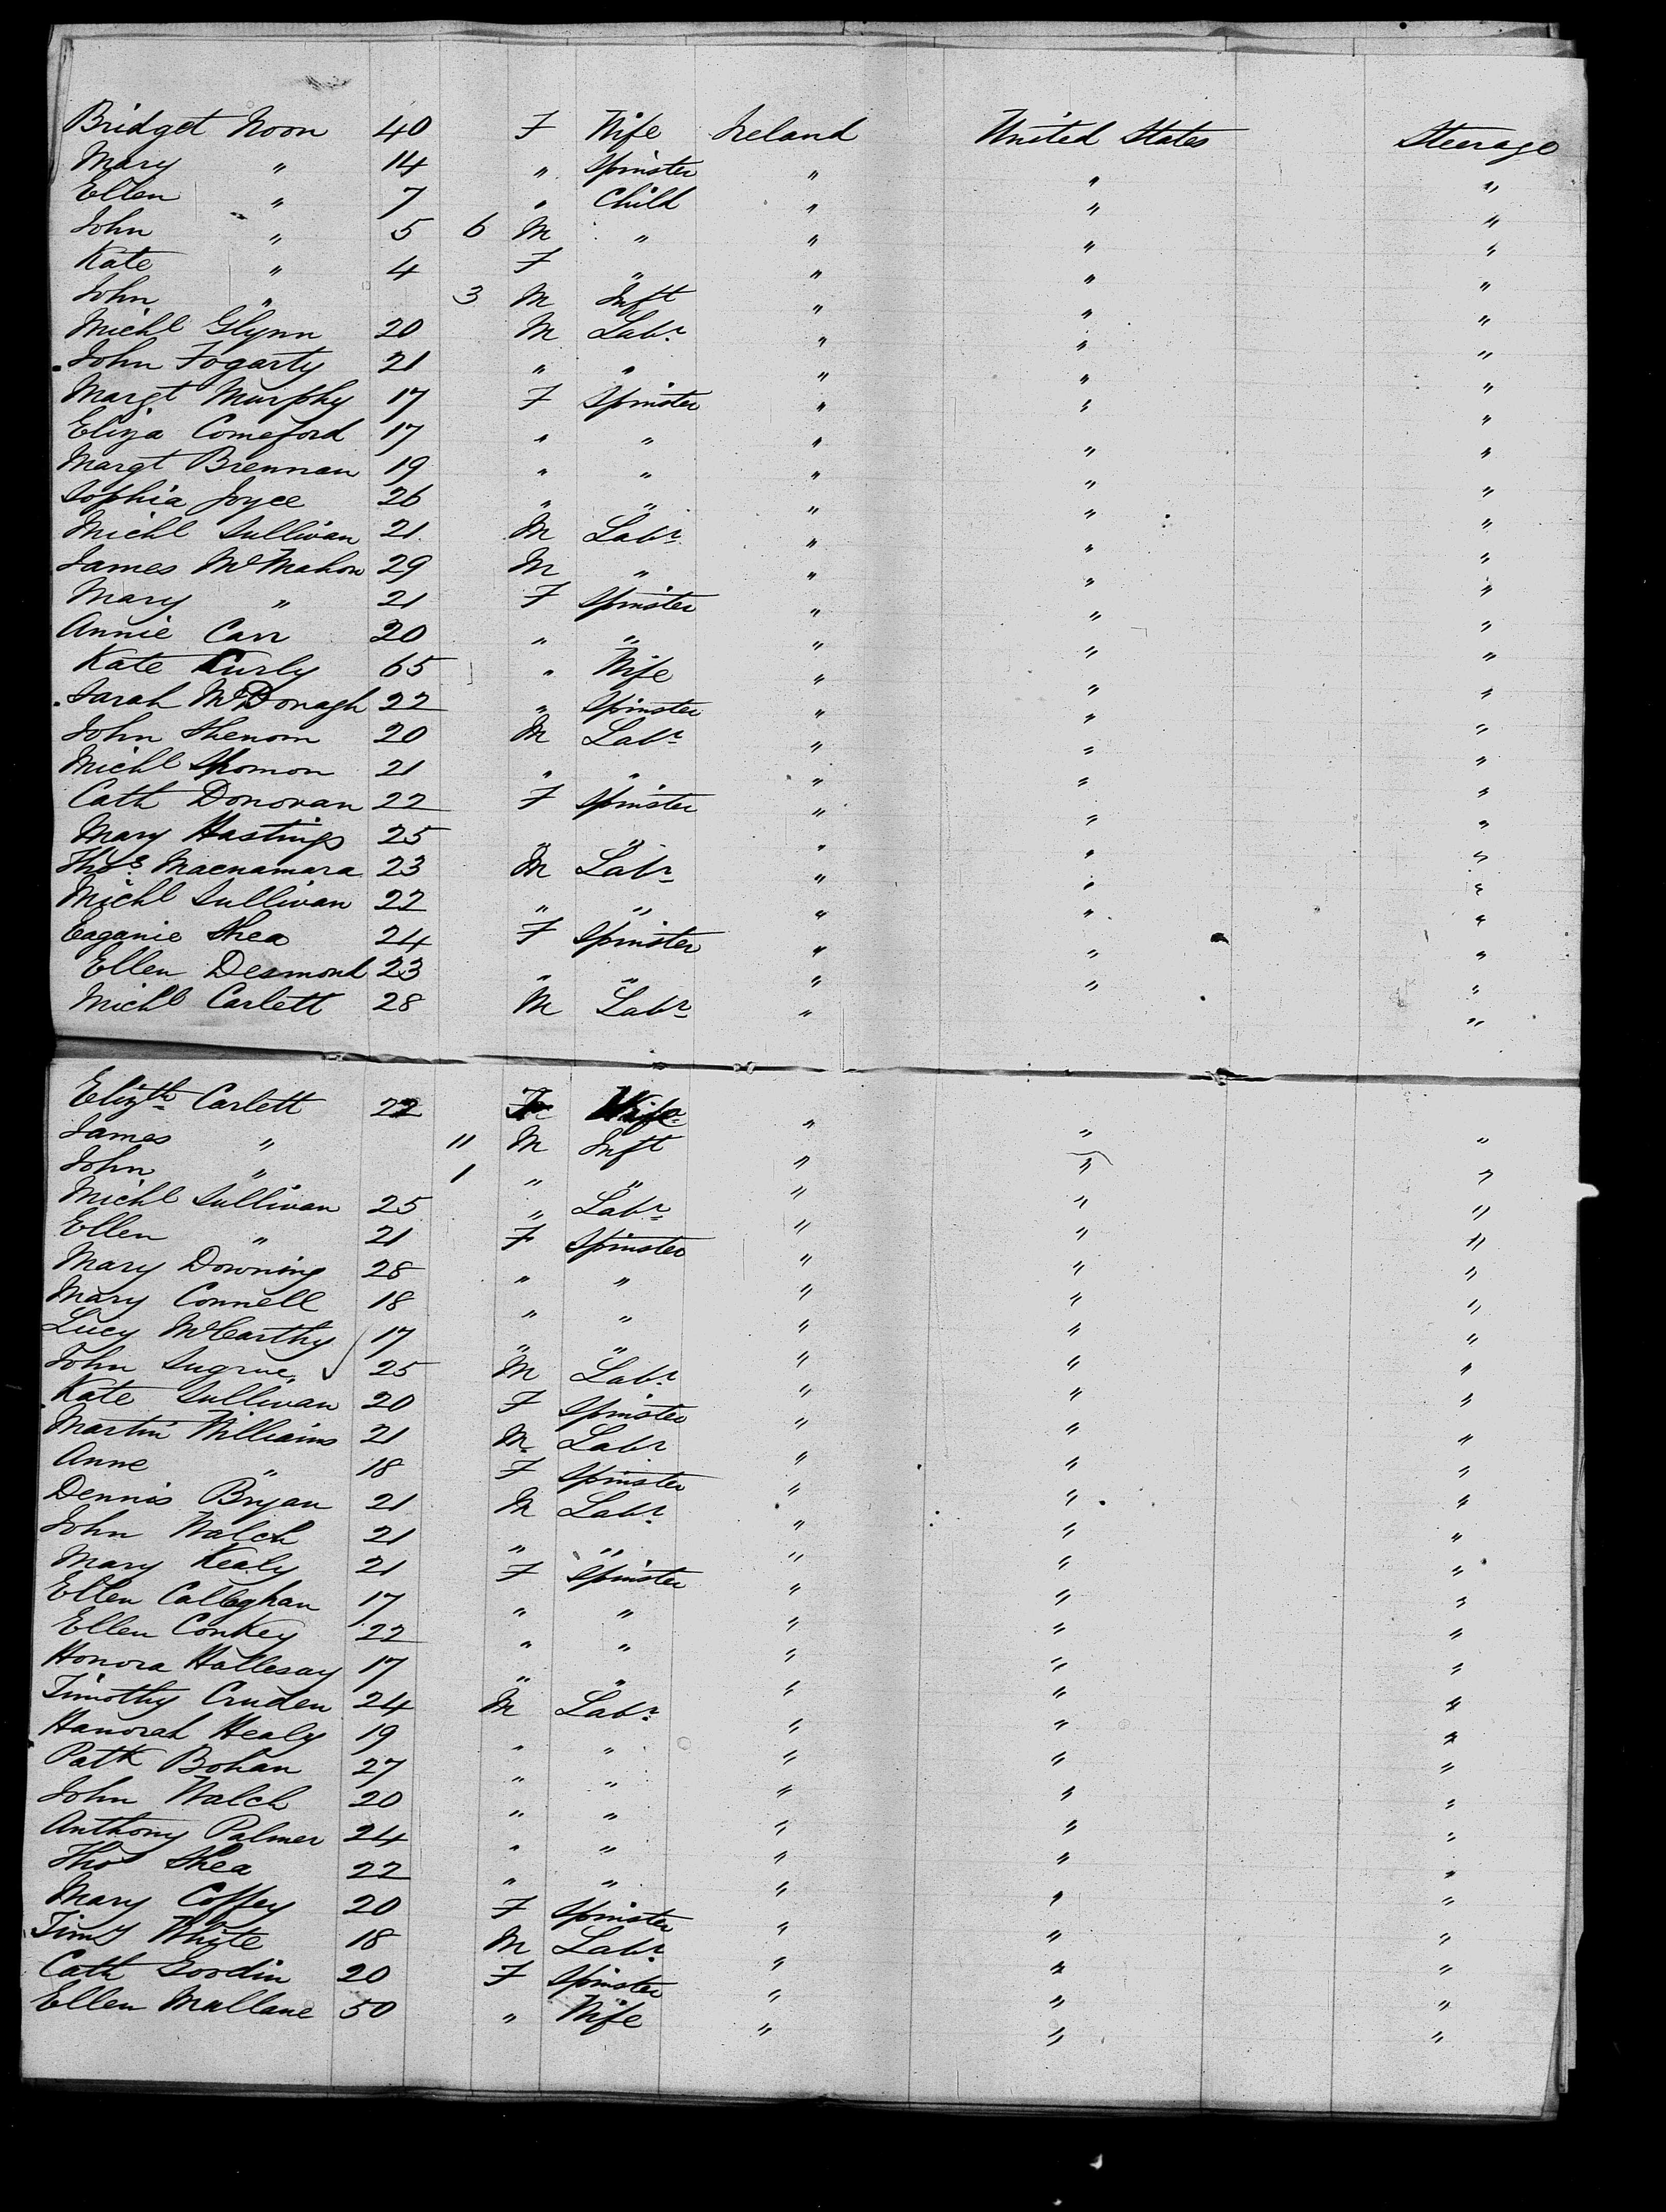 Bridget Noon 40 F Wife Ireland United States Steerage
Mary " 14 " Spinster " " "
Ellen " 7 " Child " " "
John " 5 6 M " " " "
Kate " 4 F " " " "
John " 3 M Inft " " "
Michl Glynn 20 M Labr " " "
John Fogarty 21 " " " " "
Margt Murphy 17 F Spinster " " "
Eliza Comeford 17 " " " " "
Margt Brennan 19 " " " " "
Sophia Joyce 26 " " " " "
Michl Sullivan 21 M Labr " " "
James McMahon 29 M " " " "
Mary " 21 F Spinster " " "
Annie Carr 20 " " " " "
Kate Curly 65 " Wife " " "
Sarah McDonagh 22 " Spinster " " "
John Shenom 20 M Labr " " "
Michl 21 " " " " "
Cath Donovan 22 F Spinster " " "
Mary Hastings 25 " " " " "
Thos Macnamara 23 M Labr " " "
Michl Sullivan 22 " " " " "
Shea 24 F Spinster " " "
Ellen Desmond 23 " " " " "
Michl Carlett 28 M Labr " "
Elizth Carlett 22 F Wife " " "
James " 11 M Inft " " "
John " 1 " " " " "
Michl Sullivan 25 " Labr " " "
Ellen " 21 F Spinster " " "
Mary Downing 28 " " " " "
Mary Connell 18 " " " " "
Lucy McCarthy 17 " " " " "
John Sugrue 25 M Labr " " "
Kate Sullivan 20 F Spinster " " "
Martin Williams 21 M Labr " " "
Anne " 18 F Spinster " " "
Dennis Bryan 21 M Labr " " "
John Walch 21 " " " " "
Mary Kealy 21 F Spinster " " "
Ellen Calleghan 17 " " " " "
Ellen Conkey 22 " " " " "
Honora Hallesay 17 " " " " "
Timothy Cruden 24 M Labr " " "
Hanorah Healy 19 " " " " "
Patk Bohan 27 " " " " "
John Walch 20 " " " " "
Anthony Palmer 24 " " " " "
Thos Shea 22 " " " " "
Mary Coffey 20 F Spinster " " "
Timy White 18 M Labr " " "
Cath Gordin 20 F Spinster " " "
Ellen Mallane 50 " Wife " " "